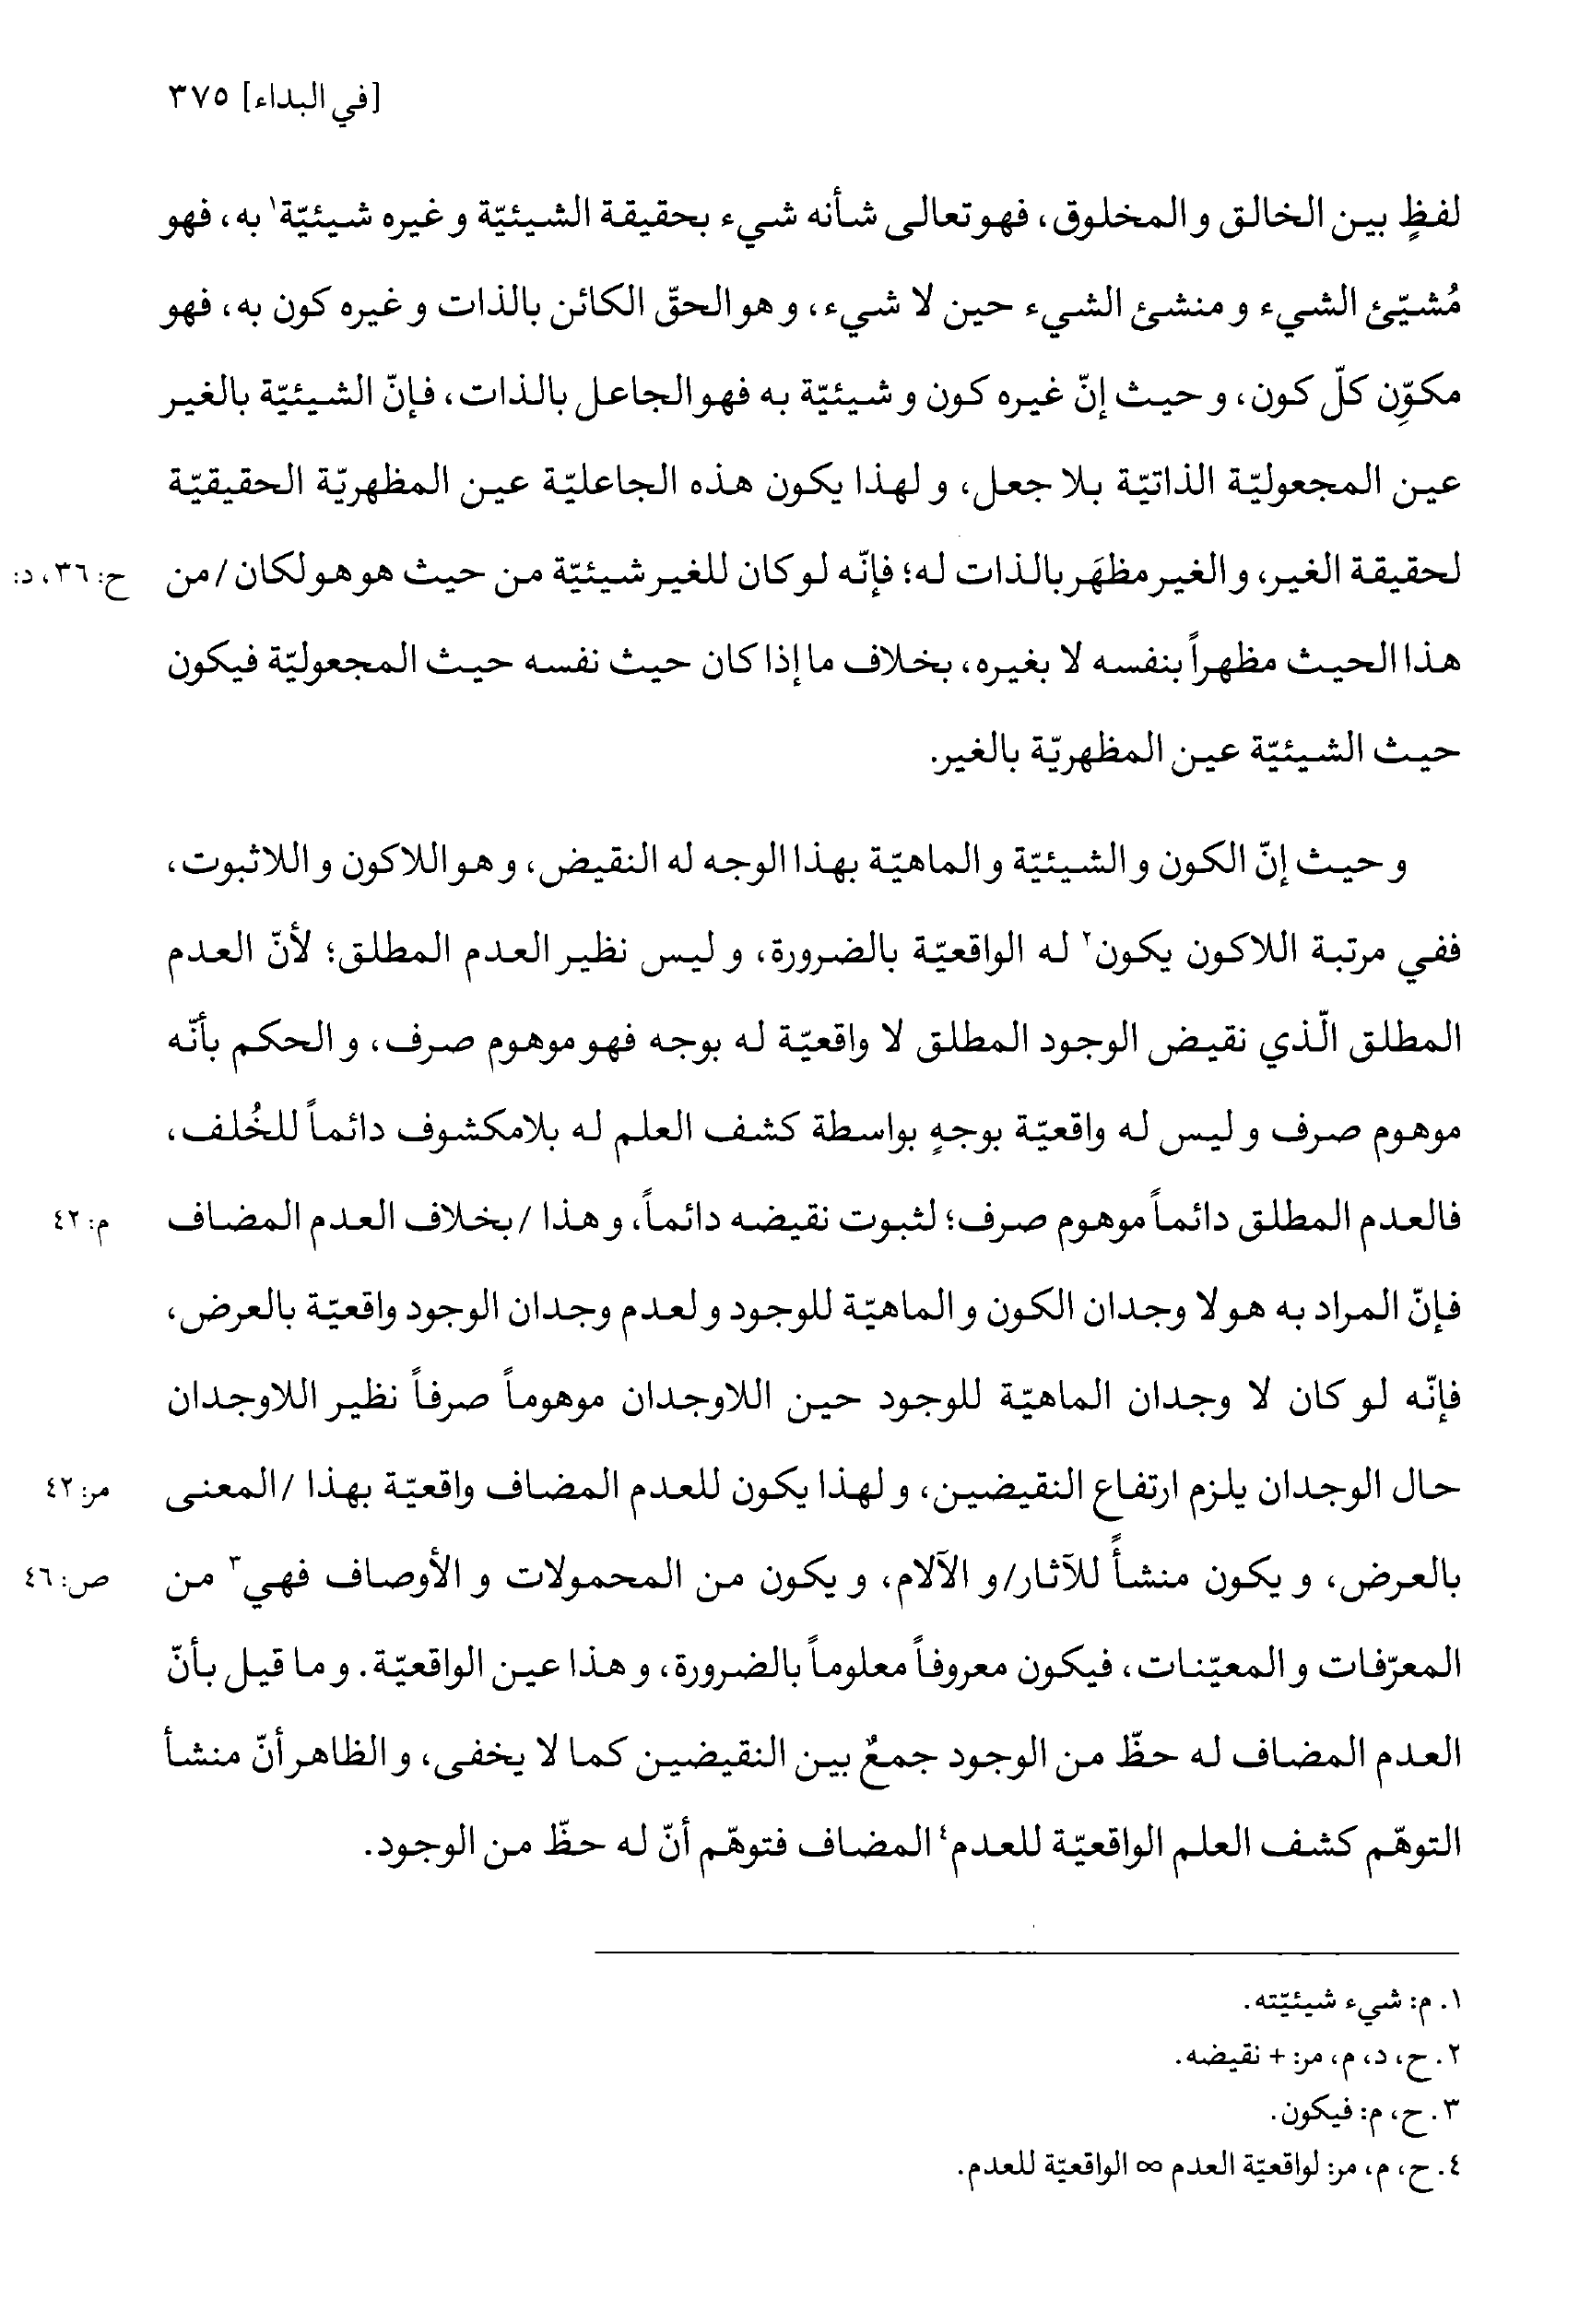 [في البداء] ٣٧٥
لفظٍ بين الخالق و المخلوق، فهو تعالى شأنه شيء بحقيقة الشيئيّة و غيره شيئيّة١ به، فهو
مُشيّئ الشيء و منشئ الشيء حين لا شيء، و هو الحقّ الكائن بالذات و غيره كون به، فهو
مكوِّن كلّ كون، و حيث إنّ غيره كون و شيئيّة به فهو الجاعل بالذات، فإنّ الشيئيّة بالغير
عين المجعوليّة الذاتيّة بلا جعل، و لهذا يكون هذه الجاعليّة عين المظهريّة الحقيقيّة
لحقيقة الغير، و الغير مظهَر بالذات له؛ فإنّه لو كان للغير شيئيّة من حيث هو هو لكان /من ح: ٣٦، د:
هذا الحيث مظهراً بنفسه لا بغيره، بخلاف ما إذا كان حيث نفسه حيث المجعوليّة فيكون
حيث الشيئيّة عين المظهريّة بالغير.
و حيث إنّ الكون و الشيئيّة و الماهيّة بهذا الوجه له النقيض، و هو اللاكون و اللاثبوت،
ففي مرتبة اللاكون يكون٢ له الواقعيّة بالضرورة، و ليس نظير العدم المطلق؛ لأنّ العدم
المطلق الّذي نقيض الوجود المطلق لا واقعيّة له بوجه فهو موهوم صرف، و الحكم بأنّه
موهوم صرف و ليس له واقعيّة بوجهٍ بواسطة كشف العلم له بلامكشوف دائماً للخُلف،
فالعدم المطلق دائماً موهوم صرف؛ لثبوت نقيضه دائماً، و هذا /بخلاف العدم المضاف م: ٤٢
فإنّ المراد به هو لا وجدان الكون و الماهيّة للوجود و لعدم وجدان الوجود واقعيّة بالعرض،
فإنّه لو كان لا وجدان الماهيّة للوجود حين اللاوجدان موهوماً صرفاً نظير اللاوجدان
حال الوجدان يلزم ارتفاع النقيضين، و لهذا يكون للعدم المضاف واقعيّة بهذا /المعنى مر: ٤٢
بالعرض، و يكون منشأً للآثار/و الآلام، و يكون من المحمولات و الأوصاف فهي٣ من ص: ٤٦
المعرّفات و المعيّنات، فيكون معروفاً معلوماً بالضرورة، و هذا عين الواقعيّة. و ما قيل بأنّ
العدم المضاف له حظّ من الوجود جمعٌ بين النقيضين كما لا يخفى، و الظاهر أنّ منشأ
التوهّم كشف العلم الواقعيّة للعدم٤ المضاف فتوهّم أنّ له حظّ من الوجود.
١. م: شيء شيئيّته.
٢. ح، د، م، مر: + نقيضه.
٣. ح، م: فيكون.
٤. ح، م، مر: لواقعيّة العدم ∞ الواقعيّة للعدم.